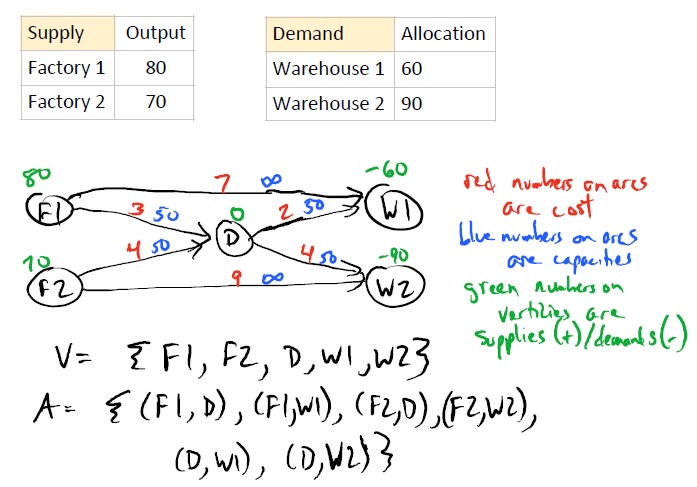 Supply Output
Factory 1 80
Factory 2 70
Demand Allocation
Warehouse 1 60
Warehouse 2 90
80 7 ∞ -60
F1 3 50 0 2 50 W1
D
70 4 50 4 50 -90
F2 9 ∞ W2
red numbers on arcs
are cost
blue numbers on arcs
are capacities
green numbers on
vertizies are
supplies (+)/demands (-)
V= { F1, F2, D, W1, W2}
A= { (F1, D), (F1, W1), (F2, D), (F2, W2),
(D, W1), (D, W2)}